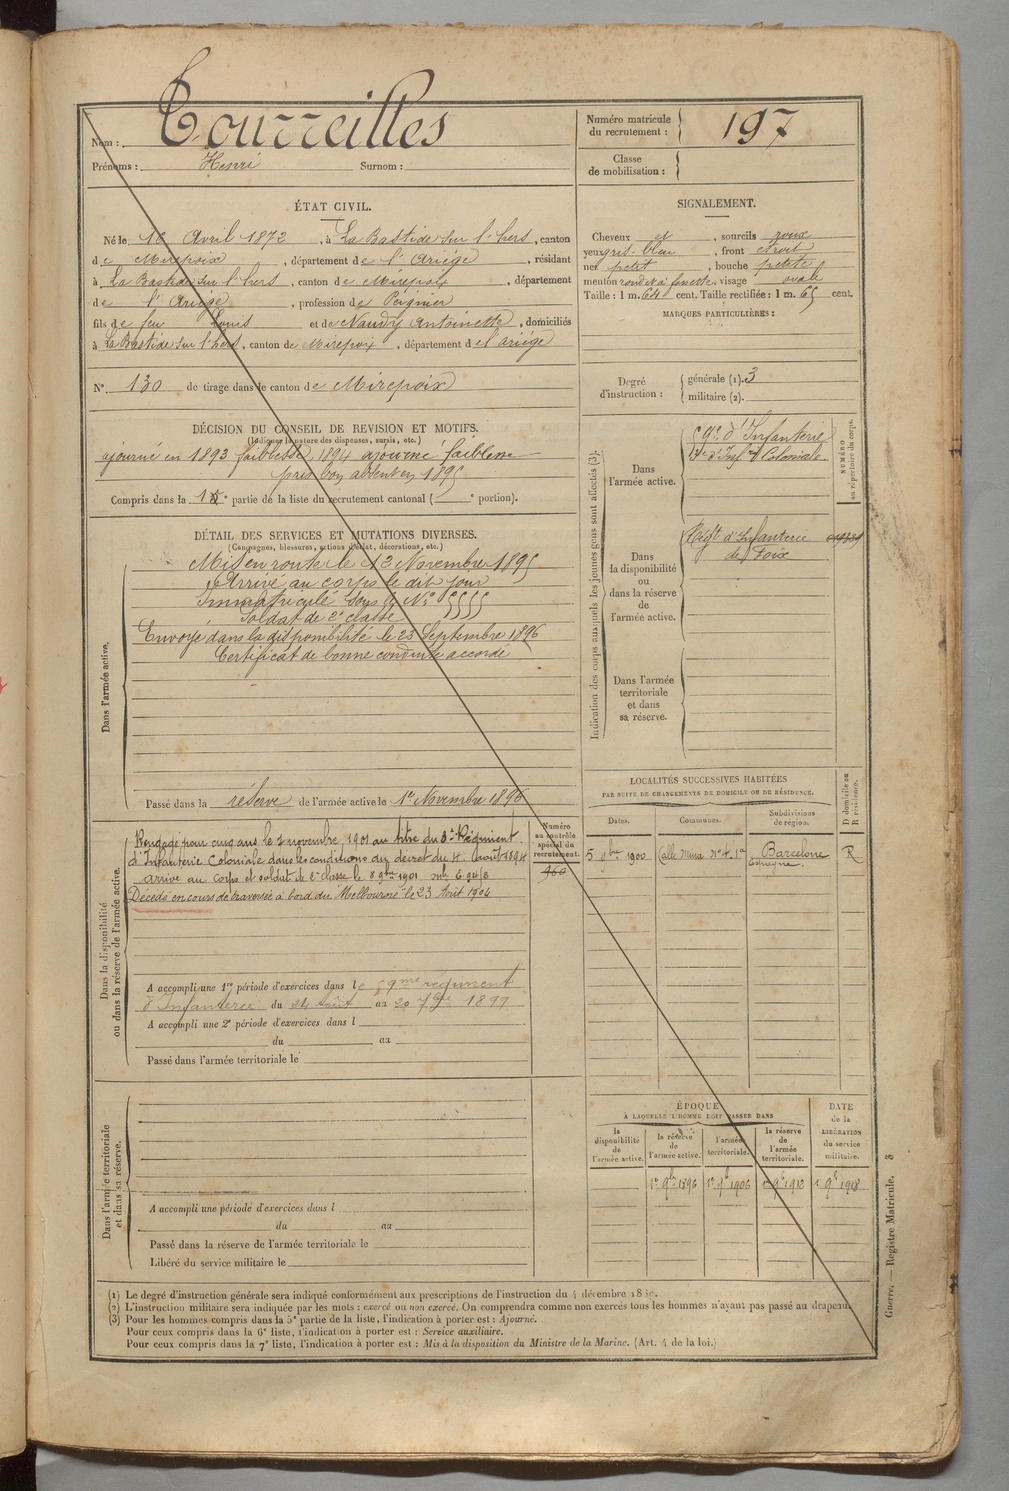 Nom : Tourreilles
Prénoms : Henri Surnom :
Numéro matricule du recrutement : 197
Classe de mobilisation :
ÉTAT CIVIL.
Né le 10 Avril 1872, à La Bastide sur l'hers, canton
de Mirepoix, département de l'Ariège, résidant
à La Bastide sur l'hers, canton de Mirepoix, département
de l'Ariège, profession de Peignier
fils de feu Louis et de Naudy Antoinette, domiciliés
à La Bastide sur l'hers, canton de Mirepoix, département de l'ariège
N° 130 de tirage dans le canton de Mirepoix
SIGNALEMENT.
Cheveux et, sourcils roux
yeux gris-bleu, front étroit
nez petit, bouche petite
menton rond et à fossette, visage ovale
Taille : 1 m. 64 cent. Taille rectifiée : 1 m. 65 cent.
MARQUES PARTICULIÈRES :
Degré d'instruction : générale (1). 3
militaire (2).
DÉCISION DU CONSEIL DE REVISION ET MOTIFS.
(Indiquer la nature des dispenses, sursis, etc.)
ajourné en 1893 faiblesse, 1894 ajourné faiblesse
pris bon absent en 1895
Compris dans la 1e partie de la liste du recrutement cantonal ( e portion).
DÉTAIL DES SERVICES ET MUTATIONS DIVERSES.
(Campagnes, blessures, actions d'éclat, décorations, etc.)
Dans l'armée active.
Mis en route le 13 Novembre 1895
Arrivé au corps le dit jour
Immatriculé sous le N° 5555
Soldat de 2e classe
Envoyé dans la disponibilité le 23 Septembre 1896
Certificat de bonne conduite accordé
Passé dans la réserve de l'armée active le 1er Novembre 1896
Indication des corps auxquels les jeunes gens sont affectés (3).
NUMÉRO au répertoire du corps.
Dans l'armée active.
59e d'Infanterie
3e d'Inf. Coloniale
Dans la disponibilité ou dans la réserve de l'armée active.
Régt d'Infanterie
de Foix
Dans l'armée territoriale et dans sa réserve.
Dans la disponibilité ou dans la réserve de l'armée active.
Numéro au contrôle spécial du recrutement.
960
Rengagé pour cinq ans le 7 novembre 1901 au titre du 3e Régiment
d'Infanterie Coloniale dans les conditions du décret du 4 août 1894
arrivé au corps et soldat de 2e classe le 8 9bre 1901
Décédé en cours de traversée à bord du Melbourne le 23 Août 1904
A accompli une 1re période d'exercices dans le 59me régiment
d'Infanterie du 24 Août au 20 7bre 1899
A accompli une 2e période d'exercices dans l
du au
Passé dans l'armée territoriale le
LOCALITÉS SUCCESSIVES HABITÉES
PAR SUITE DE CHANGEMENTS DE DOMICILE OU DE RÉSIDENCE.
Dates. Communes. Subdivisions de région. D domicile ou R résidence.
5 9bre 1900 Calle Mina N° 4, 1a Barcelone Espagne R
Dans l'armée territoriale et dans sa réserve.
A accompli une période d'exercices dans l
du au
Passé dans la réserve de l'armée territoriale le
Libéré du service militaire le
ÉPOQUE
À LAQUELLE L'HOMME DOIT PASSER DANS
DATE de la LIBÉRATION du service militaire.
la disponibilité de l'armée active. la réserve de l'armée active. l'armée territoriale. la réserve de l'armée territoriale.
1er 9bre 1896 1er 9bre 1906 1er 9bre 1912 1er 9bre 1918
(1) Le degré d'instruction générale sera indiqué conformément aux prescriptions de l'instruction du 4 décembre 1889.
(2) L'instruction militaire sera indiquée par les mots : exercé ou non exercé. On comprendra comme non exercés tous les hommes n'ayant pas passé au drapeau.
(3) Pour les hommes compris dans la 5e partie de la liste, l'indication à porter est : Ajourné.
Pour ceux compris dans la 6e liste, l'indication à porter est : Service auxiliaire.
Pour ceux compris dans la 7e liste, l'indication à porter est : Mis à la disposition du Ministre de la Marine. (Art. 4 de la loi.)
Guerre. — Registre Matricule. 3